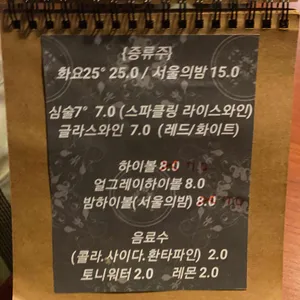 {증류주}
화요25° 25.0 / 서울의밤 15.0
심술7° 7.0 (스파클링 라이스와인)
글라스와인 7.0 (레드/화이트)
하이볼 8.0
얼그레이하이볼 8.0
밤하이볼(서울의밤) 8.0
음료수
(콜라.사이다.환타파인) 2.0
토니워터 2.0 레몬 2.0